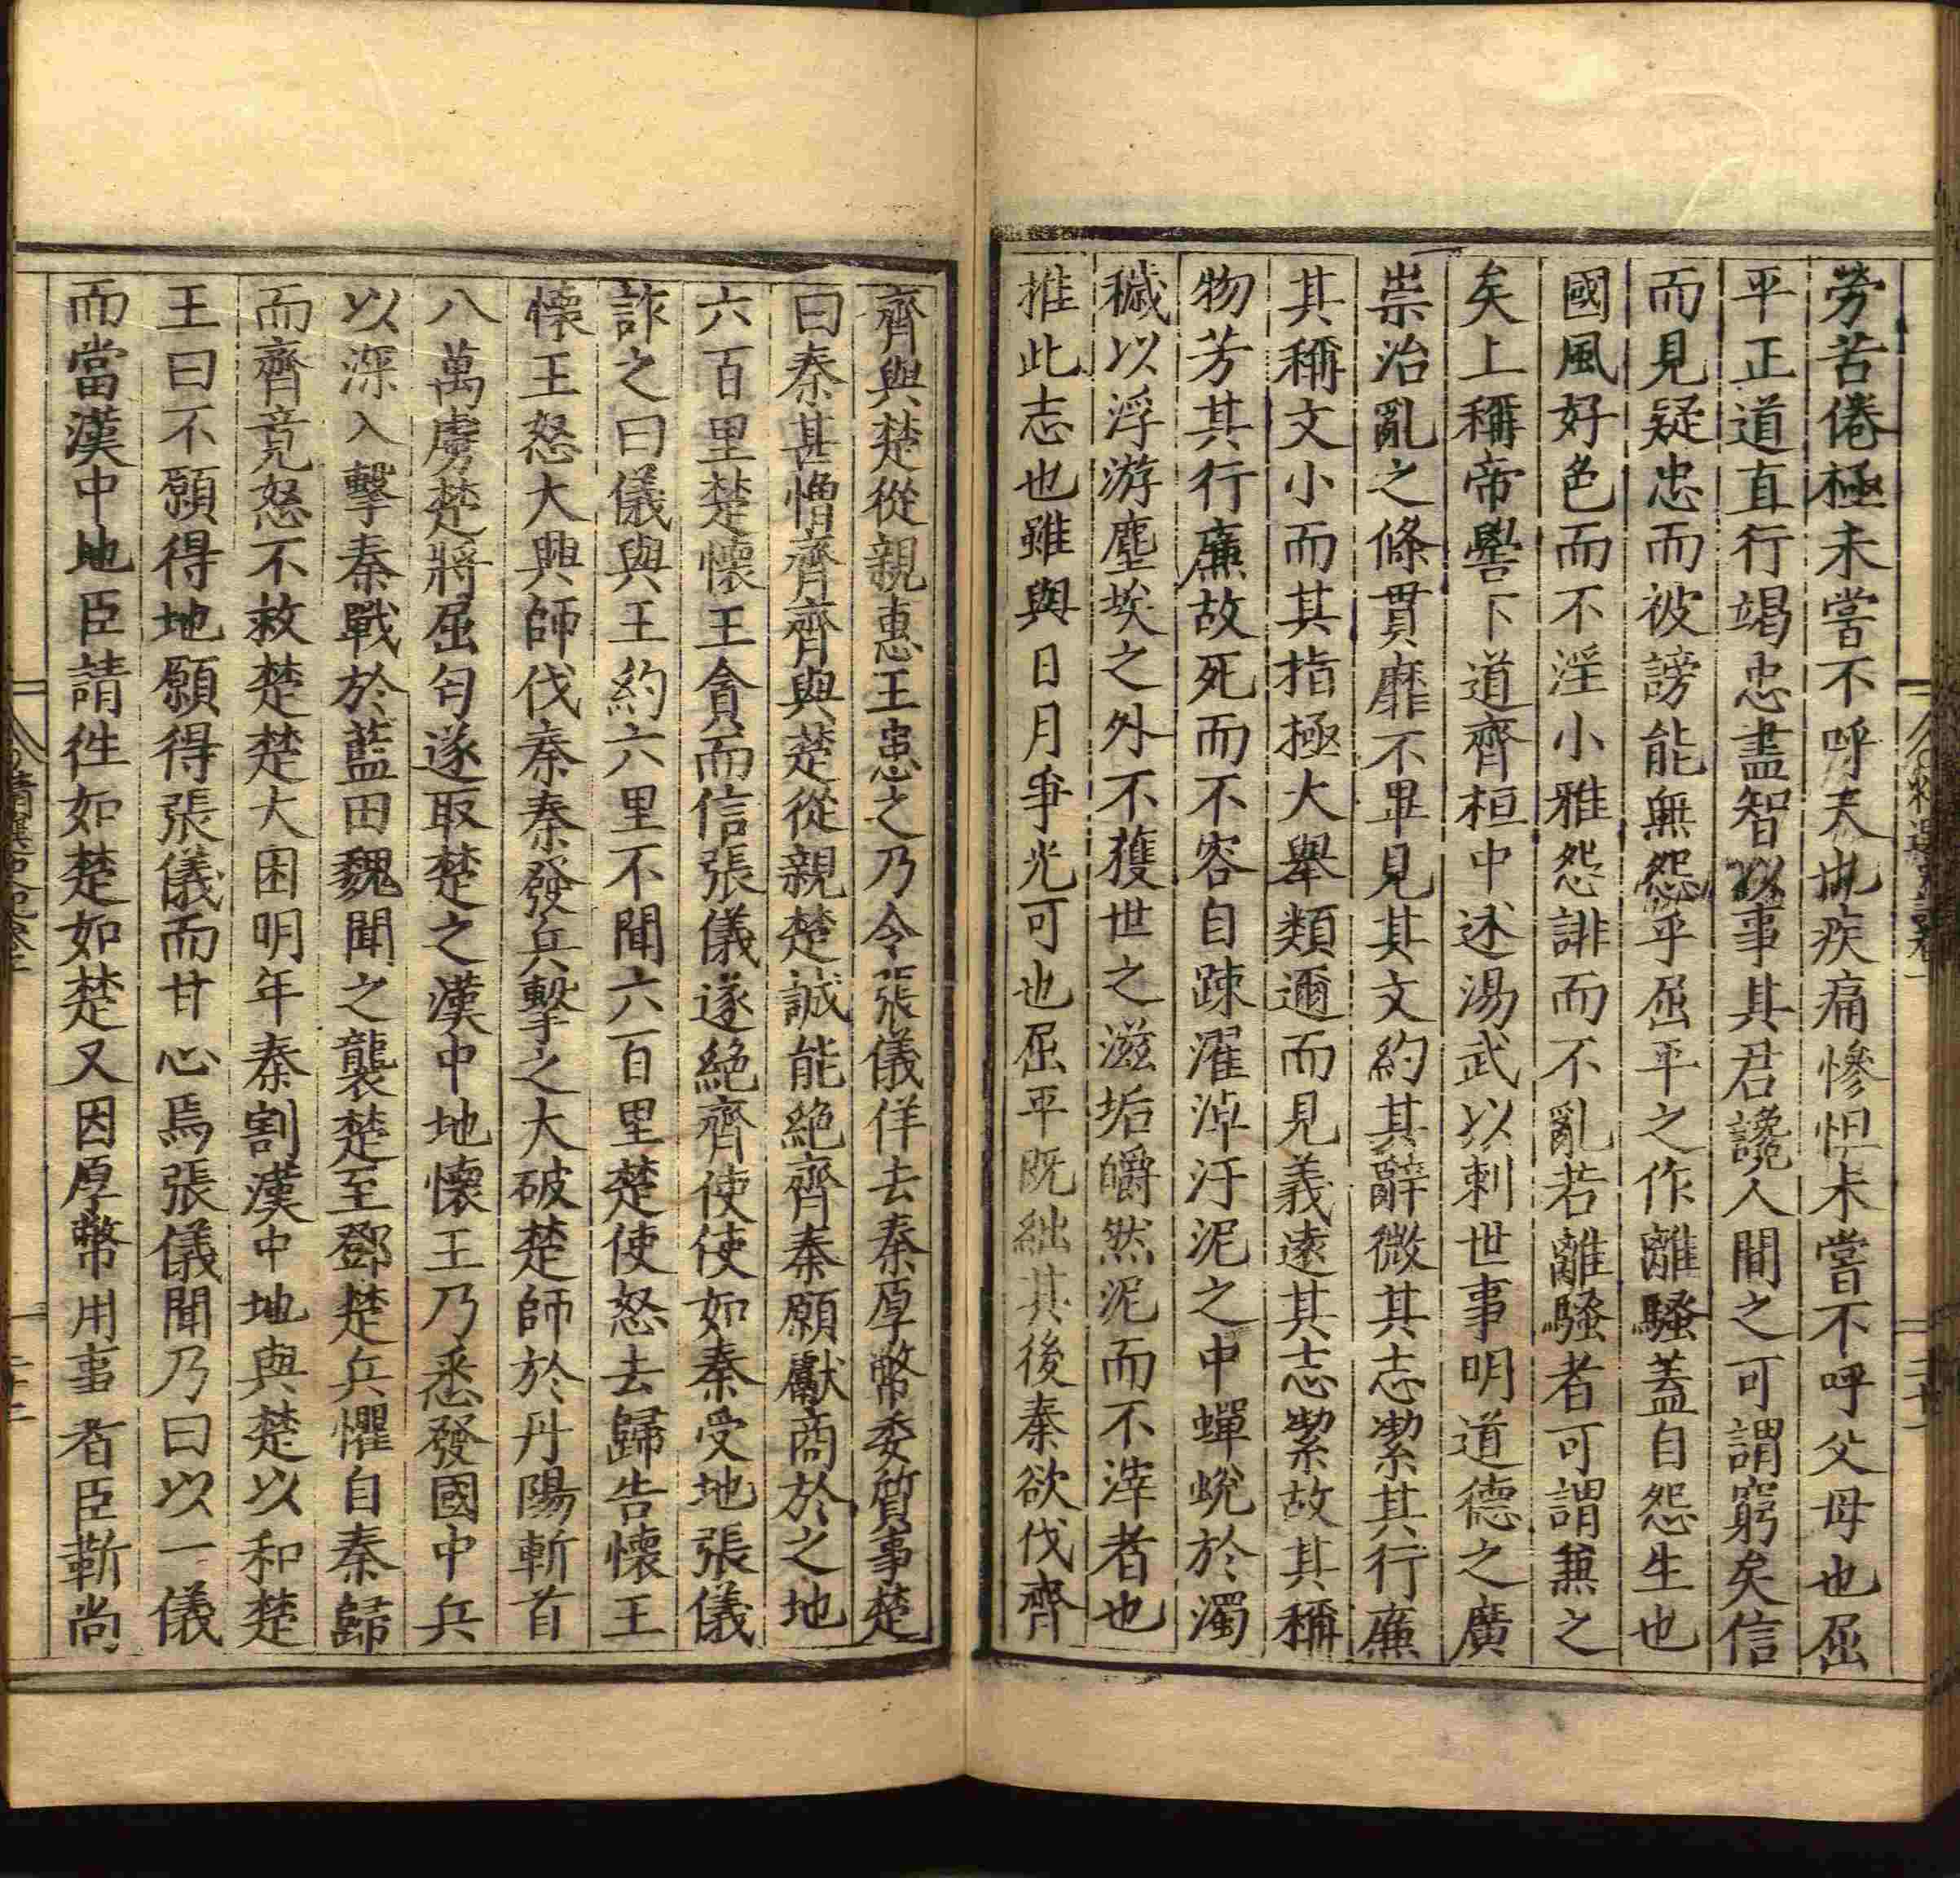 勞苦倦極未嘗不呼天也疾痛慘怛未嘗不呼父母也屈
平正道直行竭忠盡智以事其君讒人間之可謂窮矣信
而見疑忠而被謗能無怨乎屈平之作離騷蓋自怨生也
國風好色而不淫小雅怨誹而不亂若離騷者可謂兼之
矣上稱帝嚳下道齊桓中述湯武以刺世事明道德之廣
崇治亂之條貫靡不畢見其文約其辭微其志絜其行廉
其稱文小而其指極大舉類邇而見義遠其志絜故其稱
物芳其行廉故死而不容自踈濯淖汙泥之中蟬蛻於濁
穢以浮游塵埃之外不獲世之滋垢皭然泥而不滓者也
推此志也雖與日月爭光可也屈平既絀其後秦欲伐齊
齊與楚從親惠王患之乃令張儀佯去秦厚幣委質事楚
曰秦甚憎齊齊與楚從親楚誠能絕齊秦願獻商於之地
六百里楚懷王貪而信張儀遂絕齊使使如秦受地張儀
詐之曰儀與王約六里不聞六百里楚使怒去歸告懷王
懷王怒大興師伐秦秦發兵擊之大破楚師於丹陽斬首
八萬虜楚將屈匄遂取楚之漢中地懷王乃悉發國中兵
以深入擊秦戰於藍田魏聞之襲楚至鄧楚兵懼自秦歸
而齊竟怒不救楚楚大困明年秦割漢中地與楚以和楚
王曰不願得地願得張儀而甘心焉張儀聞乃曰以一儀
而當漢中地臣請徃如楚如楚又因厚幣用事者臣靳尚